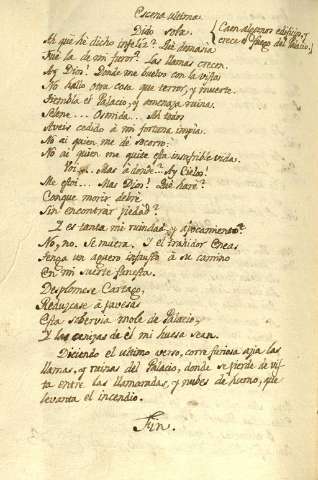 Escena ultima.
Dido sola. {Caen algunos edificios, y
crece el fuego del Palacio.}
Ah que hè dicho infeliz? Que demasia
Fue la de mi furor? Las llamas crecen.
Ay Dios! Donde me buelvo con la vista
No hallo otra cosa que terror, y muerte.
Tiembla el Palacio, y amenaza ruina.
Selene... Osmida... Ah todos
Aveis cedido à mi fortuna impia.
No ai quien me dè socorro:
No ai quien me quite esta insufrible vida.
Voi... Mas à donde? Ay Cielos!
Me estoi... Mas Dios! Què harè?
Conque morir debrè
Sin encontrar piedad?
Y es tanta mi ruindad, y apocamento?
No, no. Se muera. Y el traidor Eneas
Tenga un aguero infausto à su camino
En mi suerte funesta.
Desplomese Cartago,
Reduzcase à pavesas
Esta sobervia mole de Palacio,
Y las cenizas de èl mi huesa sean.
Diciendo el ultimo verso, corre furiosa àzia las
llamas, y ruinas del Palacio, donde se pierde de vis
ta entre las llamaradas, y nubes de humo, que
levanta el incendio.
Fin.